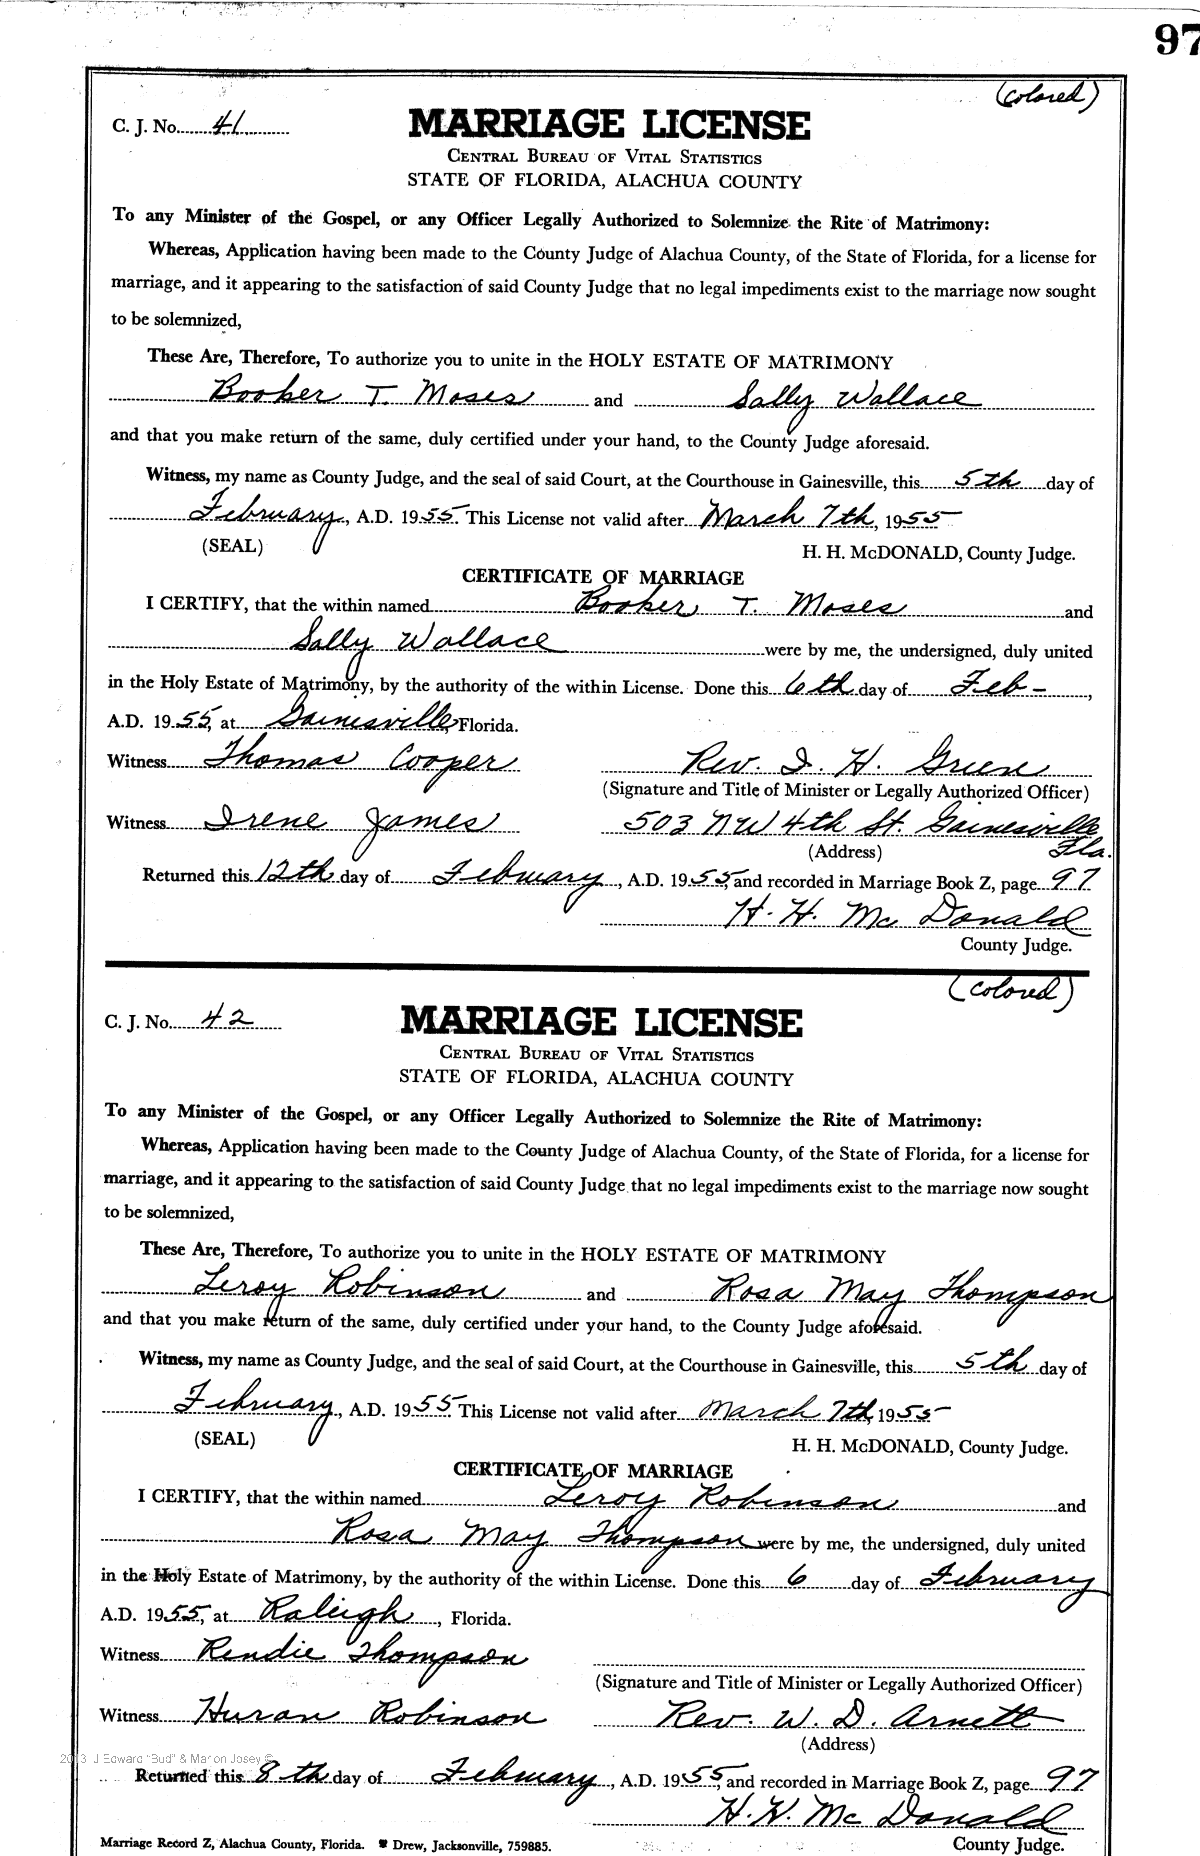 97
(colored)
C. J. No. 41
MARRIAGE LICENSE
CENTRAL BUREAU OF VITAL STATISTICS
STATE OF FLORIDA, ALACHUA COUNTY
To any Minister of the Gospel, or any Officer Legally Authorized to Solemnize the Rite of Matrimony:
Whereas, Application having been made to the County Judge of Alachua County, of the State of Florida, for a license for
marriage, and it appearing to the satisfaction of said County Judge that no legal impediments exist to the marriage now sought
to be solemnized,
These Are, Therefore, To authorize you to unite in the HOLY ESTATE OF MATRIMONY
Booker T. Moses and Sally Wallace
and that you make return of the same, duly certified under your hand, to the County Judge aforesaid.
Witness, my name as County Judge, and the seal of said Court, at the Courthouse in Gainesville, this 5th day of
February, A.D. 1955. This License not valid after March 7th, 1955
(SEAL) H. H. McDONALD, County Judge.
CERTIFICATE OF MARRIAGE
I CERTIFY, that the within named Booker T. Moses and
Sally Wallace were by me, the undersigned, duly united
in the Holy Estate of Matrimony, by the authority of the within License. Done this 6th day of Feb-,
A.D. 1955, at Gainesville, Florida.
Witness Thomas Cooper Rev. I. H. Green
(Signature and Title of Minister or Legally Authorized Officer)
Witness Irene James 503 NW 4th St. Gainesville
Fla.
(Address)
Returned this 12th day of February, A.D. 1955, and recorded in Marriage Book Z, page 97
H. H. McDonald
County Judge.
(colored)
C. J. No. 42
MARRIAGE LICENSE
CENTRAL BUREAU OF VITAL STATISTICS
STATE OF FLORIDA, ALACHUA COUNTY
To any Minister of the Gospel, or any Officer Legally Authorized to Solemnize the Rite of Matrimony:
Whereas, Application having been made to the County Judge of Alachua County, of the State of Florida, for a license for
marriage, and it appearing to the satisfaction of said County Judge that no legal impediments exist to the marriage now sought
to be solemnized,
These Are, Therefore, To authorize you to unite in the HOLY ESTATE OF MATRIMONY
Leroy Robinson and Rosa May Thompson
and that you make return of the same, duly certified under your hand, to the County Judge aforesaid.
Witness, my name as County Judge, and the seal of said Court, at the Courthouse in Gainesville, this 5th day of
February, A.D. 1955. This License not valid after March 7th, 1955
(SEAL) H. H. McDONALD, County Judge.
CERTIFICATE OF MARRIAGE
I CERTIFY, that the within named Leroy Robinson and
Rosa May Thompson were by me, the undersigned, duly united
in the Holy Estate of Matrimony, by the authority of the within License. Done this 6 day of February
A.D. 1955, at Raleigh, Florida.
Witness Rendie Thompson
(Signature and Title of Minister or Legally Authorized Officer)
Witness Huran Robinson Rev. W. D. Arnett
(Address)
2013 J Edward "Bud" & Marion Josey ©
Returned this 8th day of February, A.D. 1955, and recorded in Marriage Book Z, page 97
H. H. McDonald
Marriage Record Z, Alachua County, Florida. Drew, Jacksonville, 759885. County Judge.